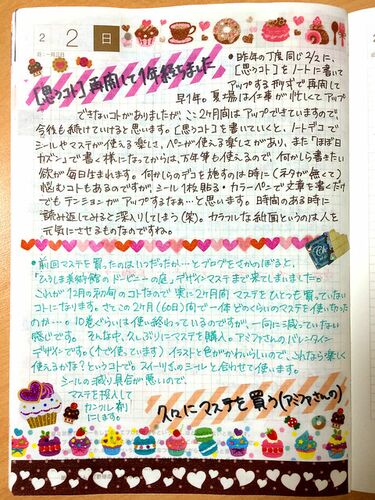 2 2 日
[思うコト]再開して1年経ちました
•昨年の丁度同じ2/2に、
[思うコト]をノートに書いて
アップする形式で再開して
早1年。夏場は仕事が忙しくてアップ
できないコトがありましたが、ここ2ヶ月間はアップできていますので、
今後も続けていけると思います。[思うコト]を書いていくと、ノートデコで
シールやマステが使える楽しさ、ペンが使える楽しさがあり、また「ほぼ日
カズン」で書く様になってからは、万年筆も使えるので、何かしら書きたい
欲が毎日生まれます。何かしらのデコを施すのは時に(ネタが無くて)
悩むコトもあるのですが、シール1枚貼る・カラーペンで文章を書くだけ
でもテンションがアップするなぁ…と思います。時間のある時に
読み返してみると深入りしてしまう(笑)。カラフルな紙面というのは人を
元気にさせるものなのですね。
•前回マステを買ったのはいつだったか…とブログをさかのぼると、
「ひろしま美術館のドービニーの庭」デザインマステまで来てしまいました。
これが12月の初旬のコトなので実に2ヶ月間マステをひとつも買っていない
コトになります。さてこの2ヶ月(60日)間で一体どのくらいのマステを使い切った
のか…。10巻ぐらいは使い終わっているのですが、一向に減っていない
感じです。そんな中、久しぶりにマステを購入。アミファさんのバレンタイン
デザインです。(下で使っています)イラストと色がかわいらしいので、これなら楽しく
使えるかな?というコトで。スイーツ系のシールと合わせて使います。
シールの減り具合が悪いので、
マステを投入して
カンフル剤
にします。
久々にマステを買う(アミファさんの)